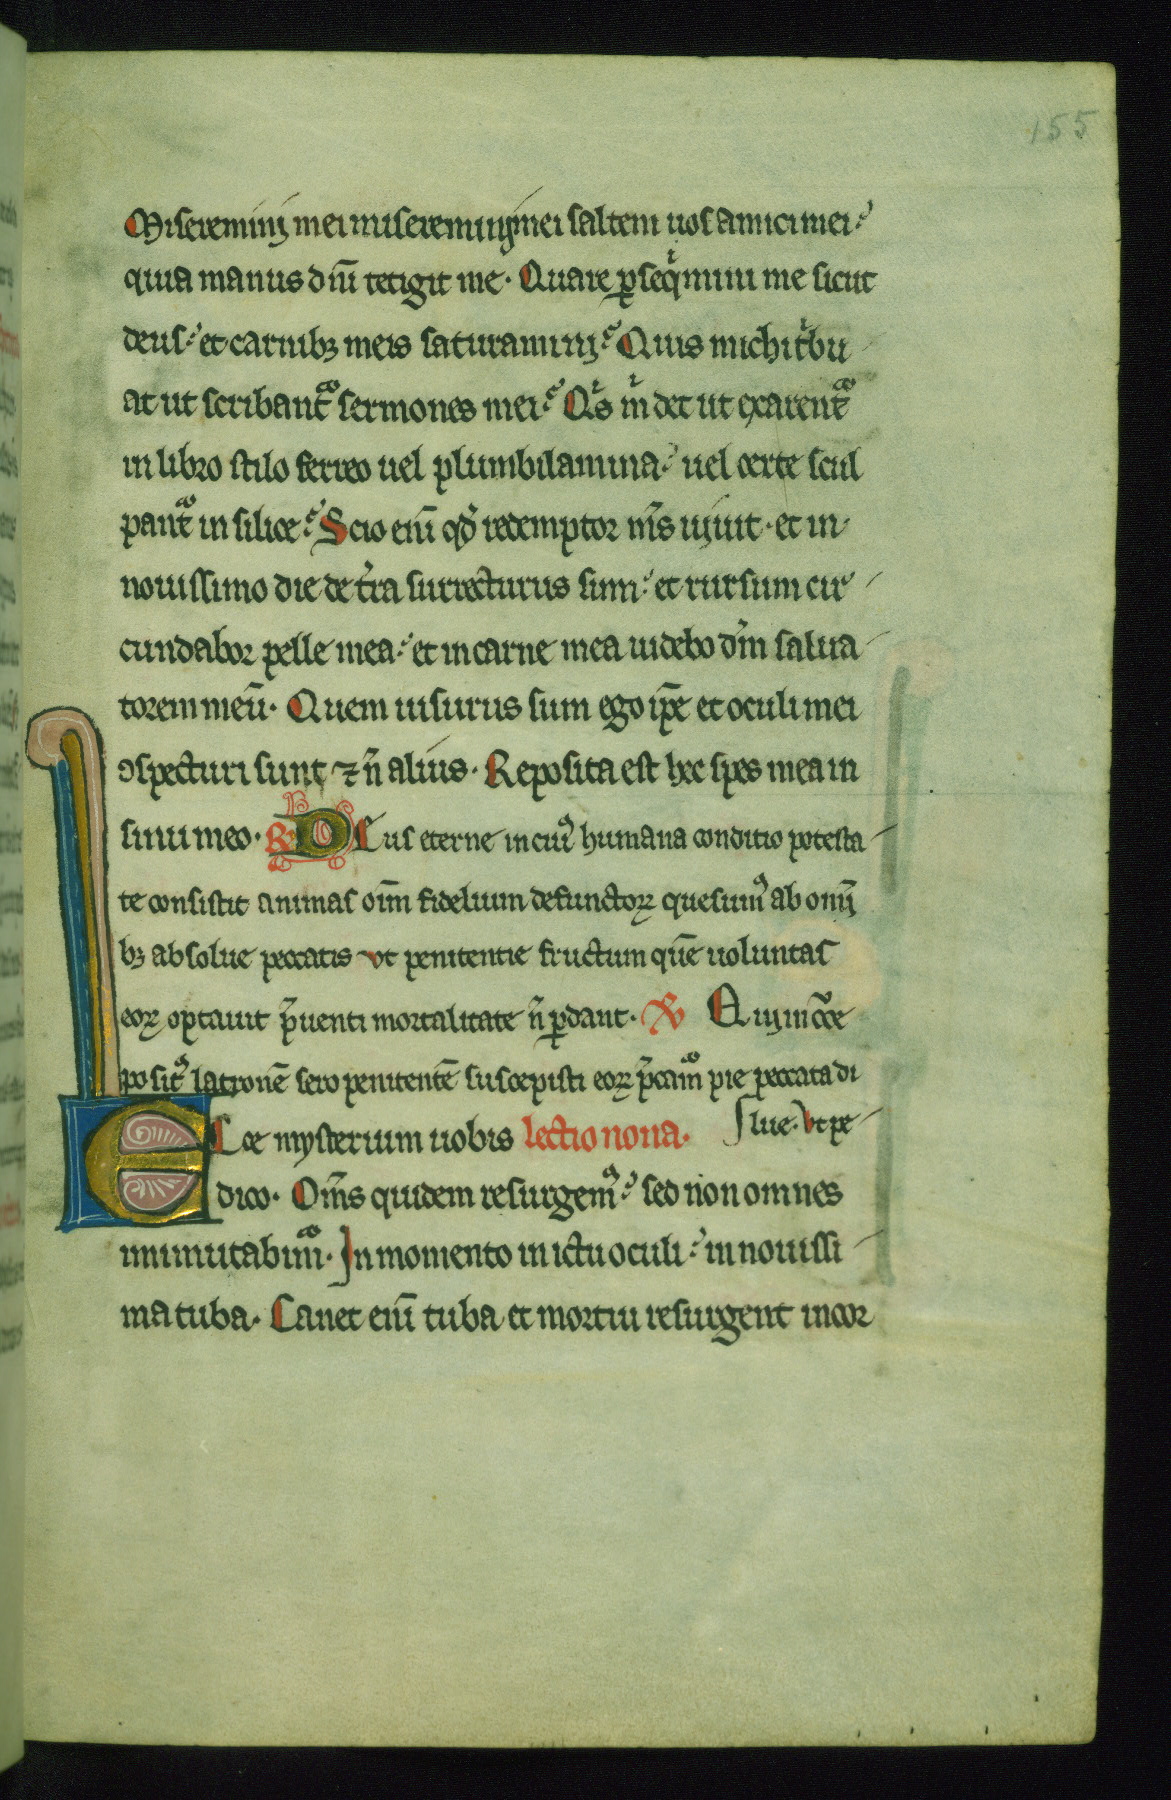 155
Miseremini mei miseremini mei saltem uos amici mei
quia manus dn̄i tetigit me. Quare ꝑseqͥmini me sicut
deus: et carnibꝫ meis saturamini? Quis michi tͥbu
at ut scribantᷣ sermones mei? Qͥs m̄ det ut exarentᷣ
in libro stilo ferreo uel plumbi lamina: uel certe scul
pantᷣ in silice? Scio eni᷒ qd̓ redemptor mr̄s uiuit. et in
nouissimo die de tr̄ra surrecturus sum: et rursum cir
cundabor pelle mea: et in carne mea uidebo dm̄ salua
torem meū. Quem uisurus sum ego ip̄e et oculi mei
ɔspecturi sunt ⁊ n̄ alius. Reposita est hec spes mea in
sinu meo. R̸ DEus eterne in cuiꝰ humana conditio potesta
te consistit animas oīm fidelium defunctoꝝ quesumꝰ ab omni
bꝫ absolue peccatis ut penitentie fructum quē uoluntas
eoꝝ optauit p̄uenti mortalitate n̄ ꝑdant. V̸ Qui in cͣce
positꝰ latronē sero penitentē suscepisti eoꝝ p̄camᷣ pie peccata di
lue. Ut pe
ECce mysterium uobis lectio nona.
dico. Om̄s quidem resurgemꝰ: sed non omnes
inmutabimᷣ. In momento in ictu oculi: in nouissi
ma tuba. Canet enī tuba et mortui resurgent incor